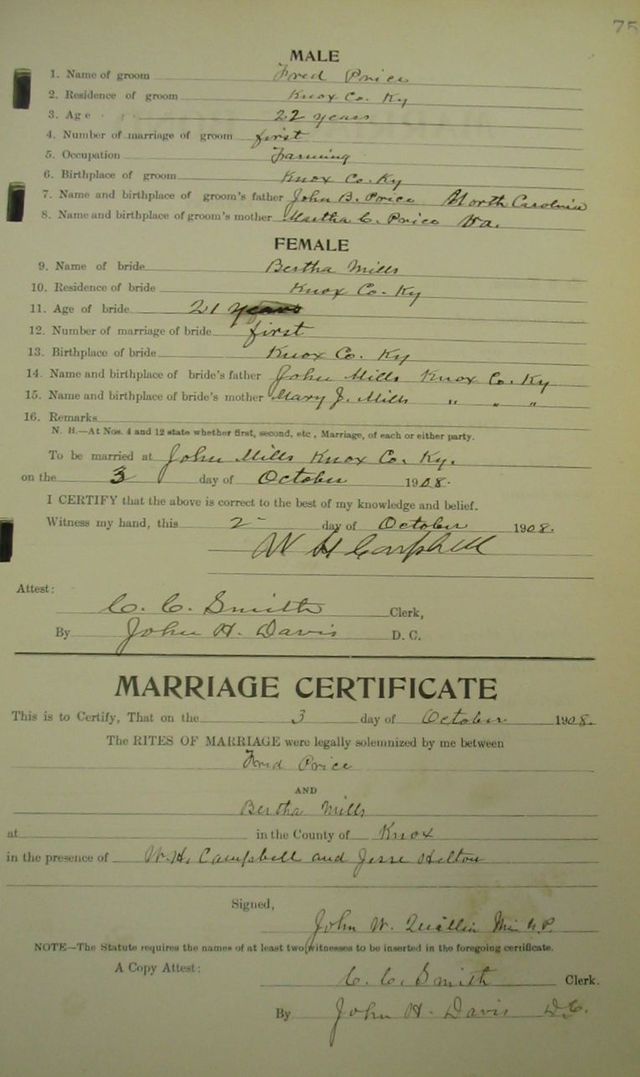 75
MALE
1. Name of groom Fred Price
2. Residence of groom Knox Co. Ky
3. Age 22 years
4. Number of marriage of groom first
5. Occupation Farming
6. Birthplace of groom Knox Co. Ky
7. Name and birthplace of groom's father John B. Price North Carolina
8. Name and birthplace of groom's mother Martha C. Price Va.
FEMALE
9. Name of bride Bertha Mills
10. Residence of bride Knox Co. Ky
11. Age of bride 21 years
12. Number of marriage of bride first
13. Birthplace of bride Knox Co. Ky
14. Name and birthplace of bride's father John Mills Knox Co. Ky
15. Name and birthplace of bride's mother Mary J. Mills " " "
16. Remarks
N. B.—At Nos. 4 and 12 state whether first, second, etc, Marriage, of each or either party.
To be married at John Mills Knox Co. Ky.
on the 3 day of October 1908.
I CERTIFY that the above is correct to the best of my knowledge and belief.
Witness my hand, this 2 day of October 1908.
W H Campbell
Attest:
C. C. Smith Clerk,
By John H. Davis D. C.
MARRIAGE CERTIFICATE
This is to Certify, That on the 3 day of October 1908.
The RITES OF MARRIAGE were legally solemnized by me between
Fred Price
AND
Bertha Mills
at in the County of Knox
in the presence of W. H. Campbell and Jesse Helton
Signed,
John W. Min
NOTE—The Statute requires the names of at least two witnesses to be inserted in the foregoing certificate.
A Copy Attest:
C. C. Smith Clerk.
By John H. Davis D.C.